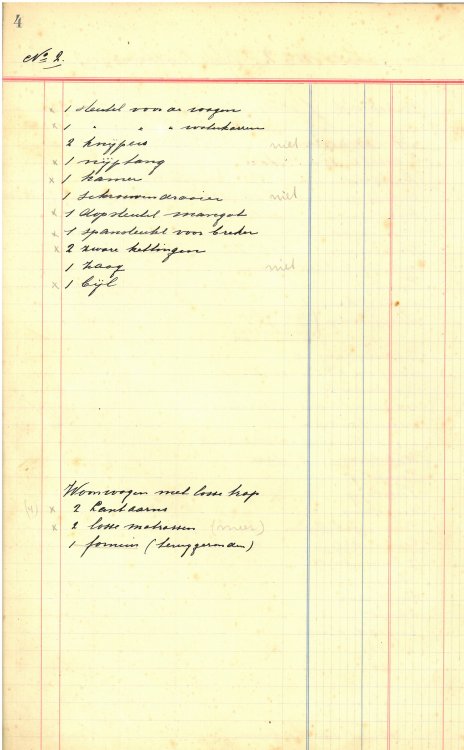 4
No 2.
x 1 sleutel voor de wagen
x 1 " " " waterkarren
2 knijpers niet
x 1 nijptang
x 1 hamer
1 schroevendraaier niet
x 1 dopsleutel mangat
x 1 spansleutel voor breder
x 2 zware kettingen
1 zaag niet
x 1 bijl
Woonwagen met losse trap
(4) x 2 Lantaarns
x 2 losse matrassen (meer)
1 fornuis (teruggevonden)